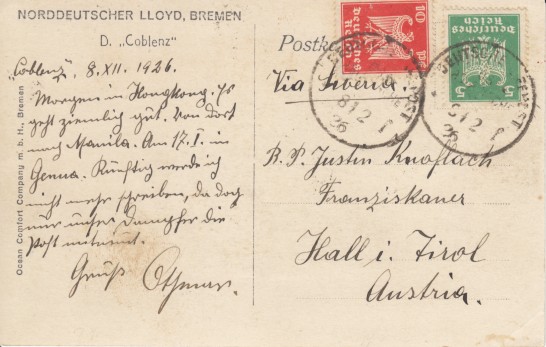 NORDDEUTSCHER LLOYD, BREMEN
D. „Coblenz"
„Coblenz", 8.XII. 1926.
Morgen in Hongkong. Es
geht ziemlich gut. Von dort
nach Manila. Am 17.I. in
Genua. Künftig werde ich
nicht mehr schreiben, da doch
nur unser Dampfer die
Post mitnimmt.
Gruß Othmar.
Ocean Comfort Company m. b. H., Bremen
Postka
Via Siberia.
10
Deutsches
Reich
Deutsches
Reich
5 5
DEUTSCHE SEEPOST
8 12
26
8 12
26
R.P. Justin Knoflach
Franziskaner
Hall i. Tirol
Austria.